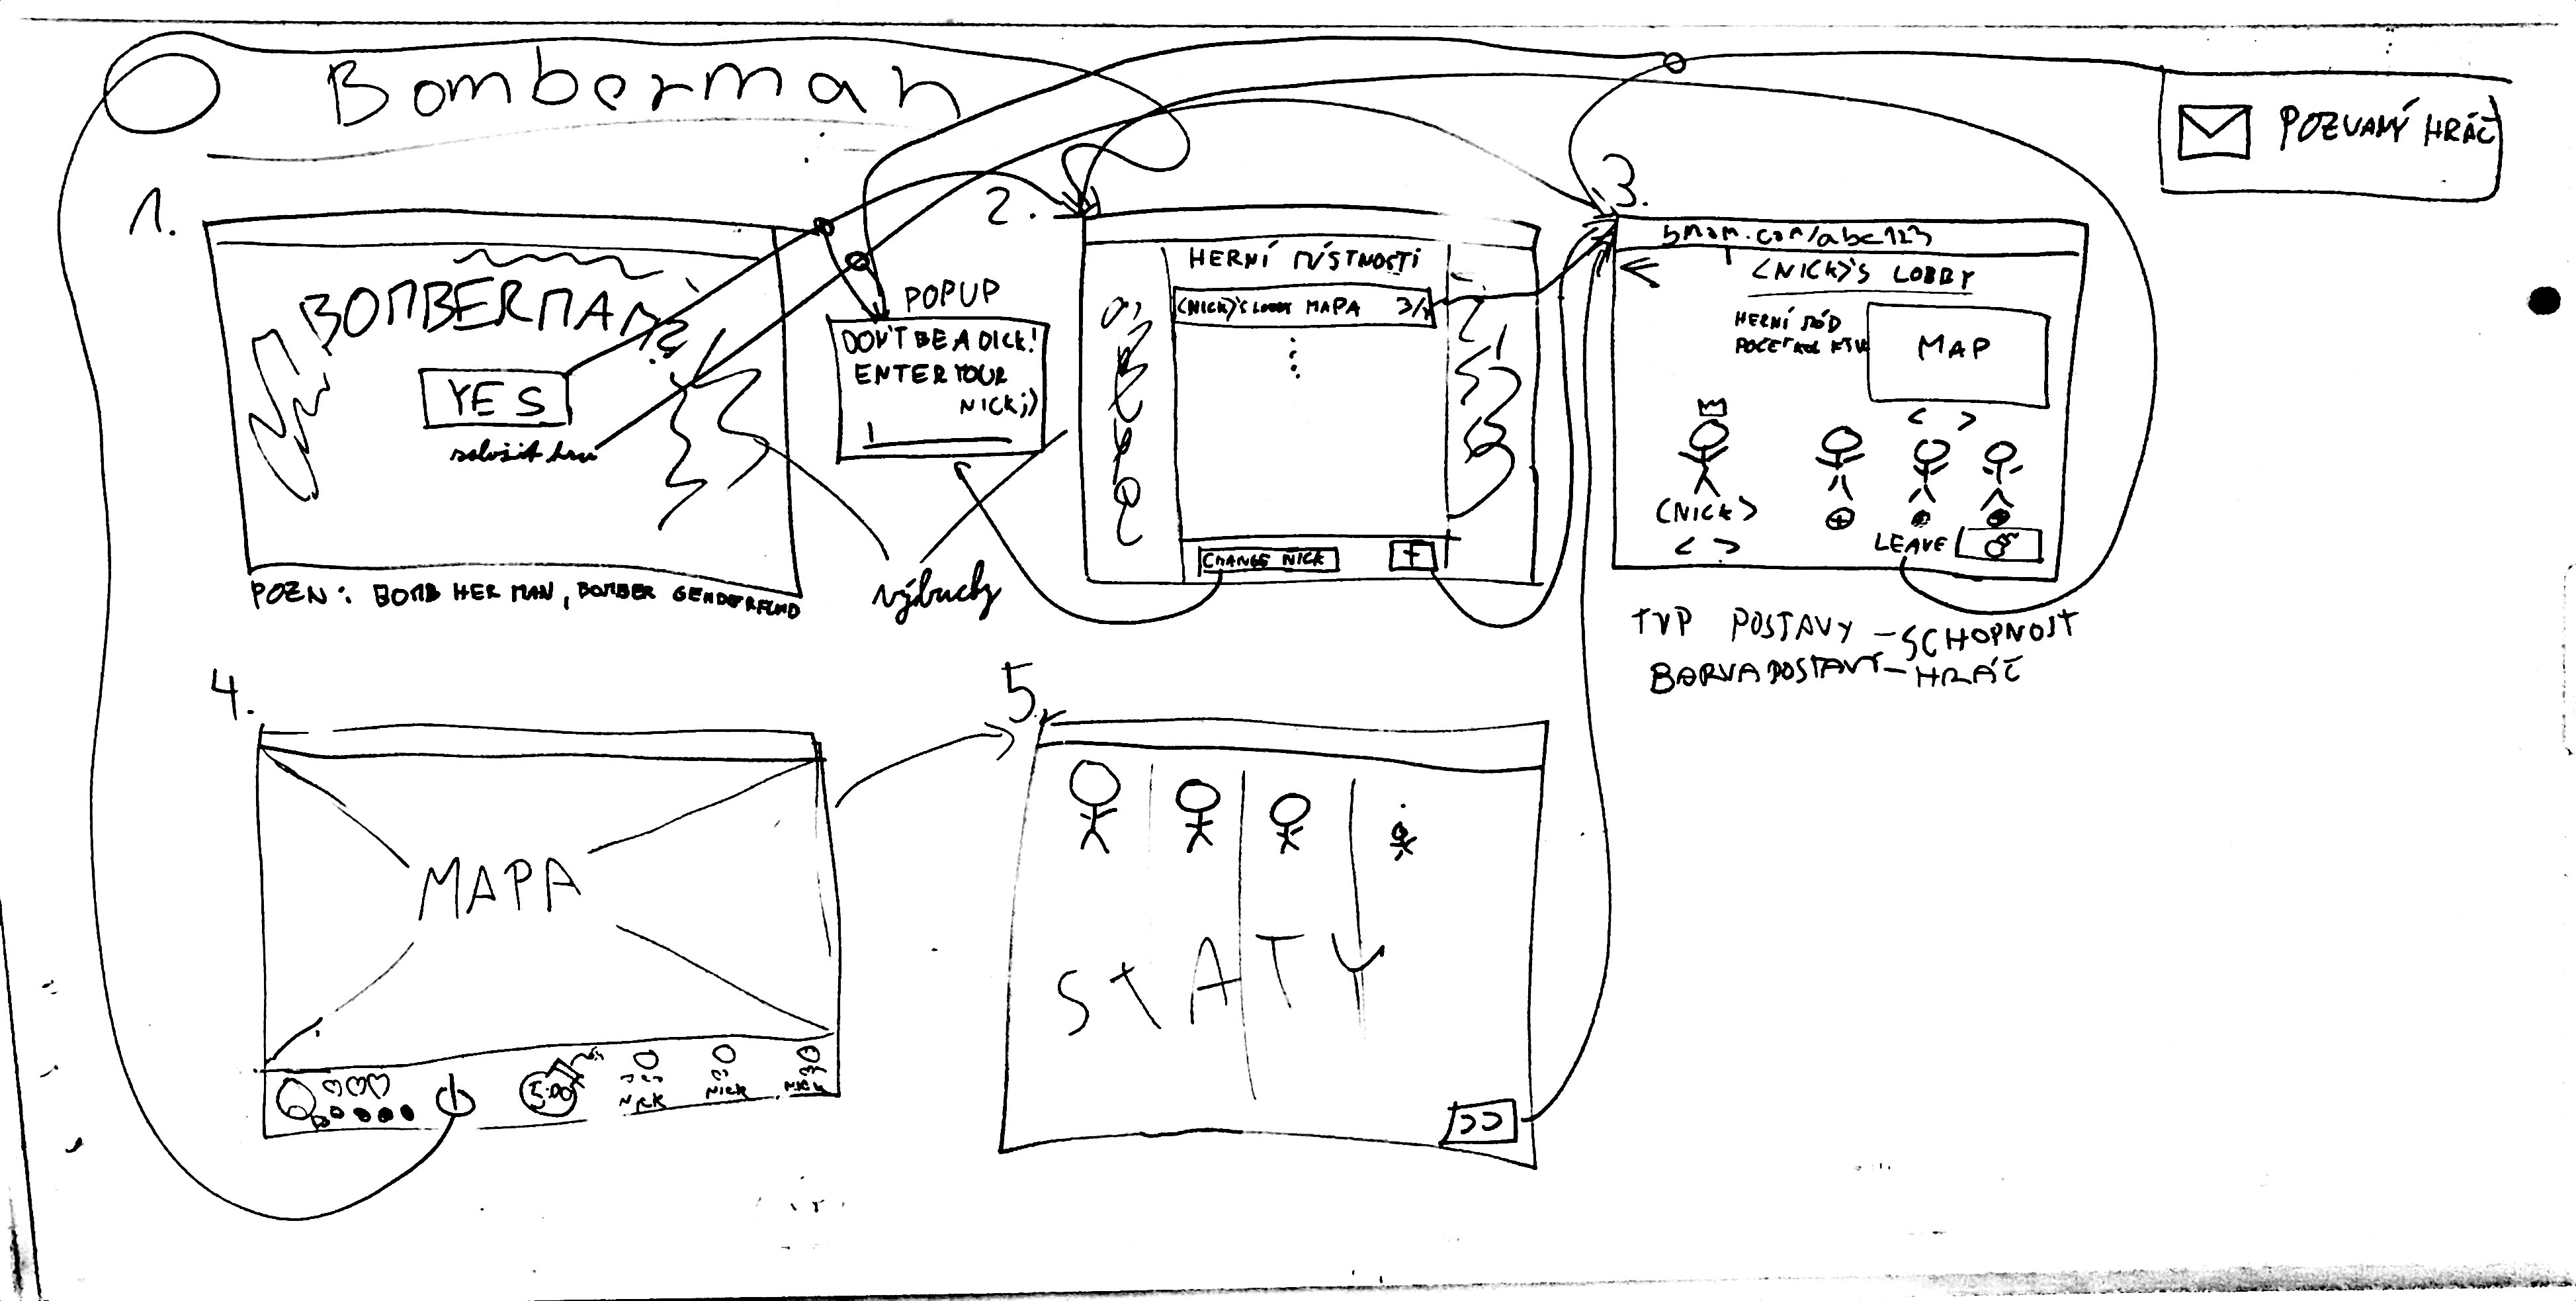 Bomberman
POZVANÝ HRÁČ
1.
BOMBERMAN?
YES
založit hru
POZN: BOMB HER MAN, BOMBER GENDERFLUID
POPUP
DON'T BE A DICK!
ENTER YOUR
NICK ;)
výbuchy
2.
HERNÍ MÍSTNOSTI
<NICK>'S LOBBY MAPA
CHANGE NICK
+
3.
bman.com/abc123
<NICK>'S LOBBY
HERNÍ MÓD
POČET KOL
MAP
< >
<NICK>
< >
LEAVE
TYP POSTAVY – SCHOPNOST
BARVA POSTAVY – HRÁČ
4.
MAPA
5:00
NICK
NICK
NICK
5.
STATY
>>